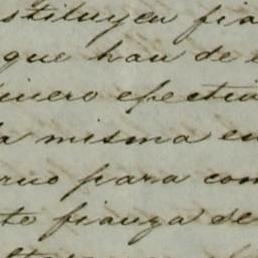 stituyen fia
que han de e
inero efectiv
la misma en
rno para con
te fianza de